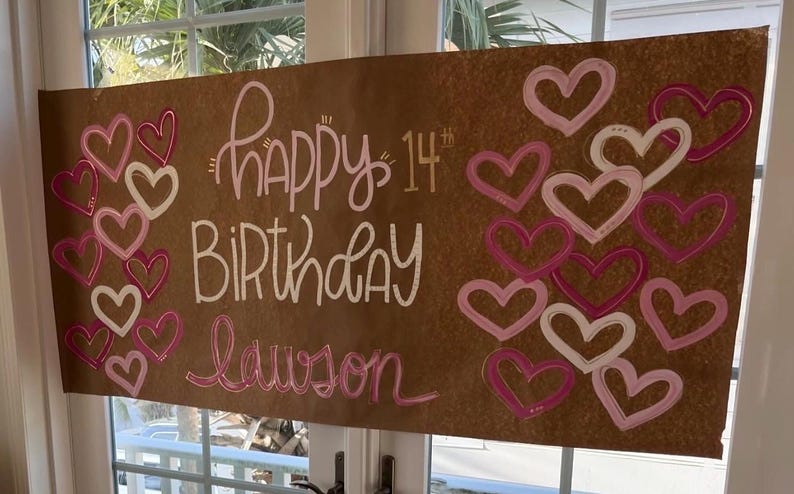 happy 14th
BirthdAy
lawson